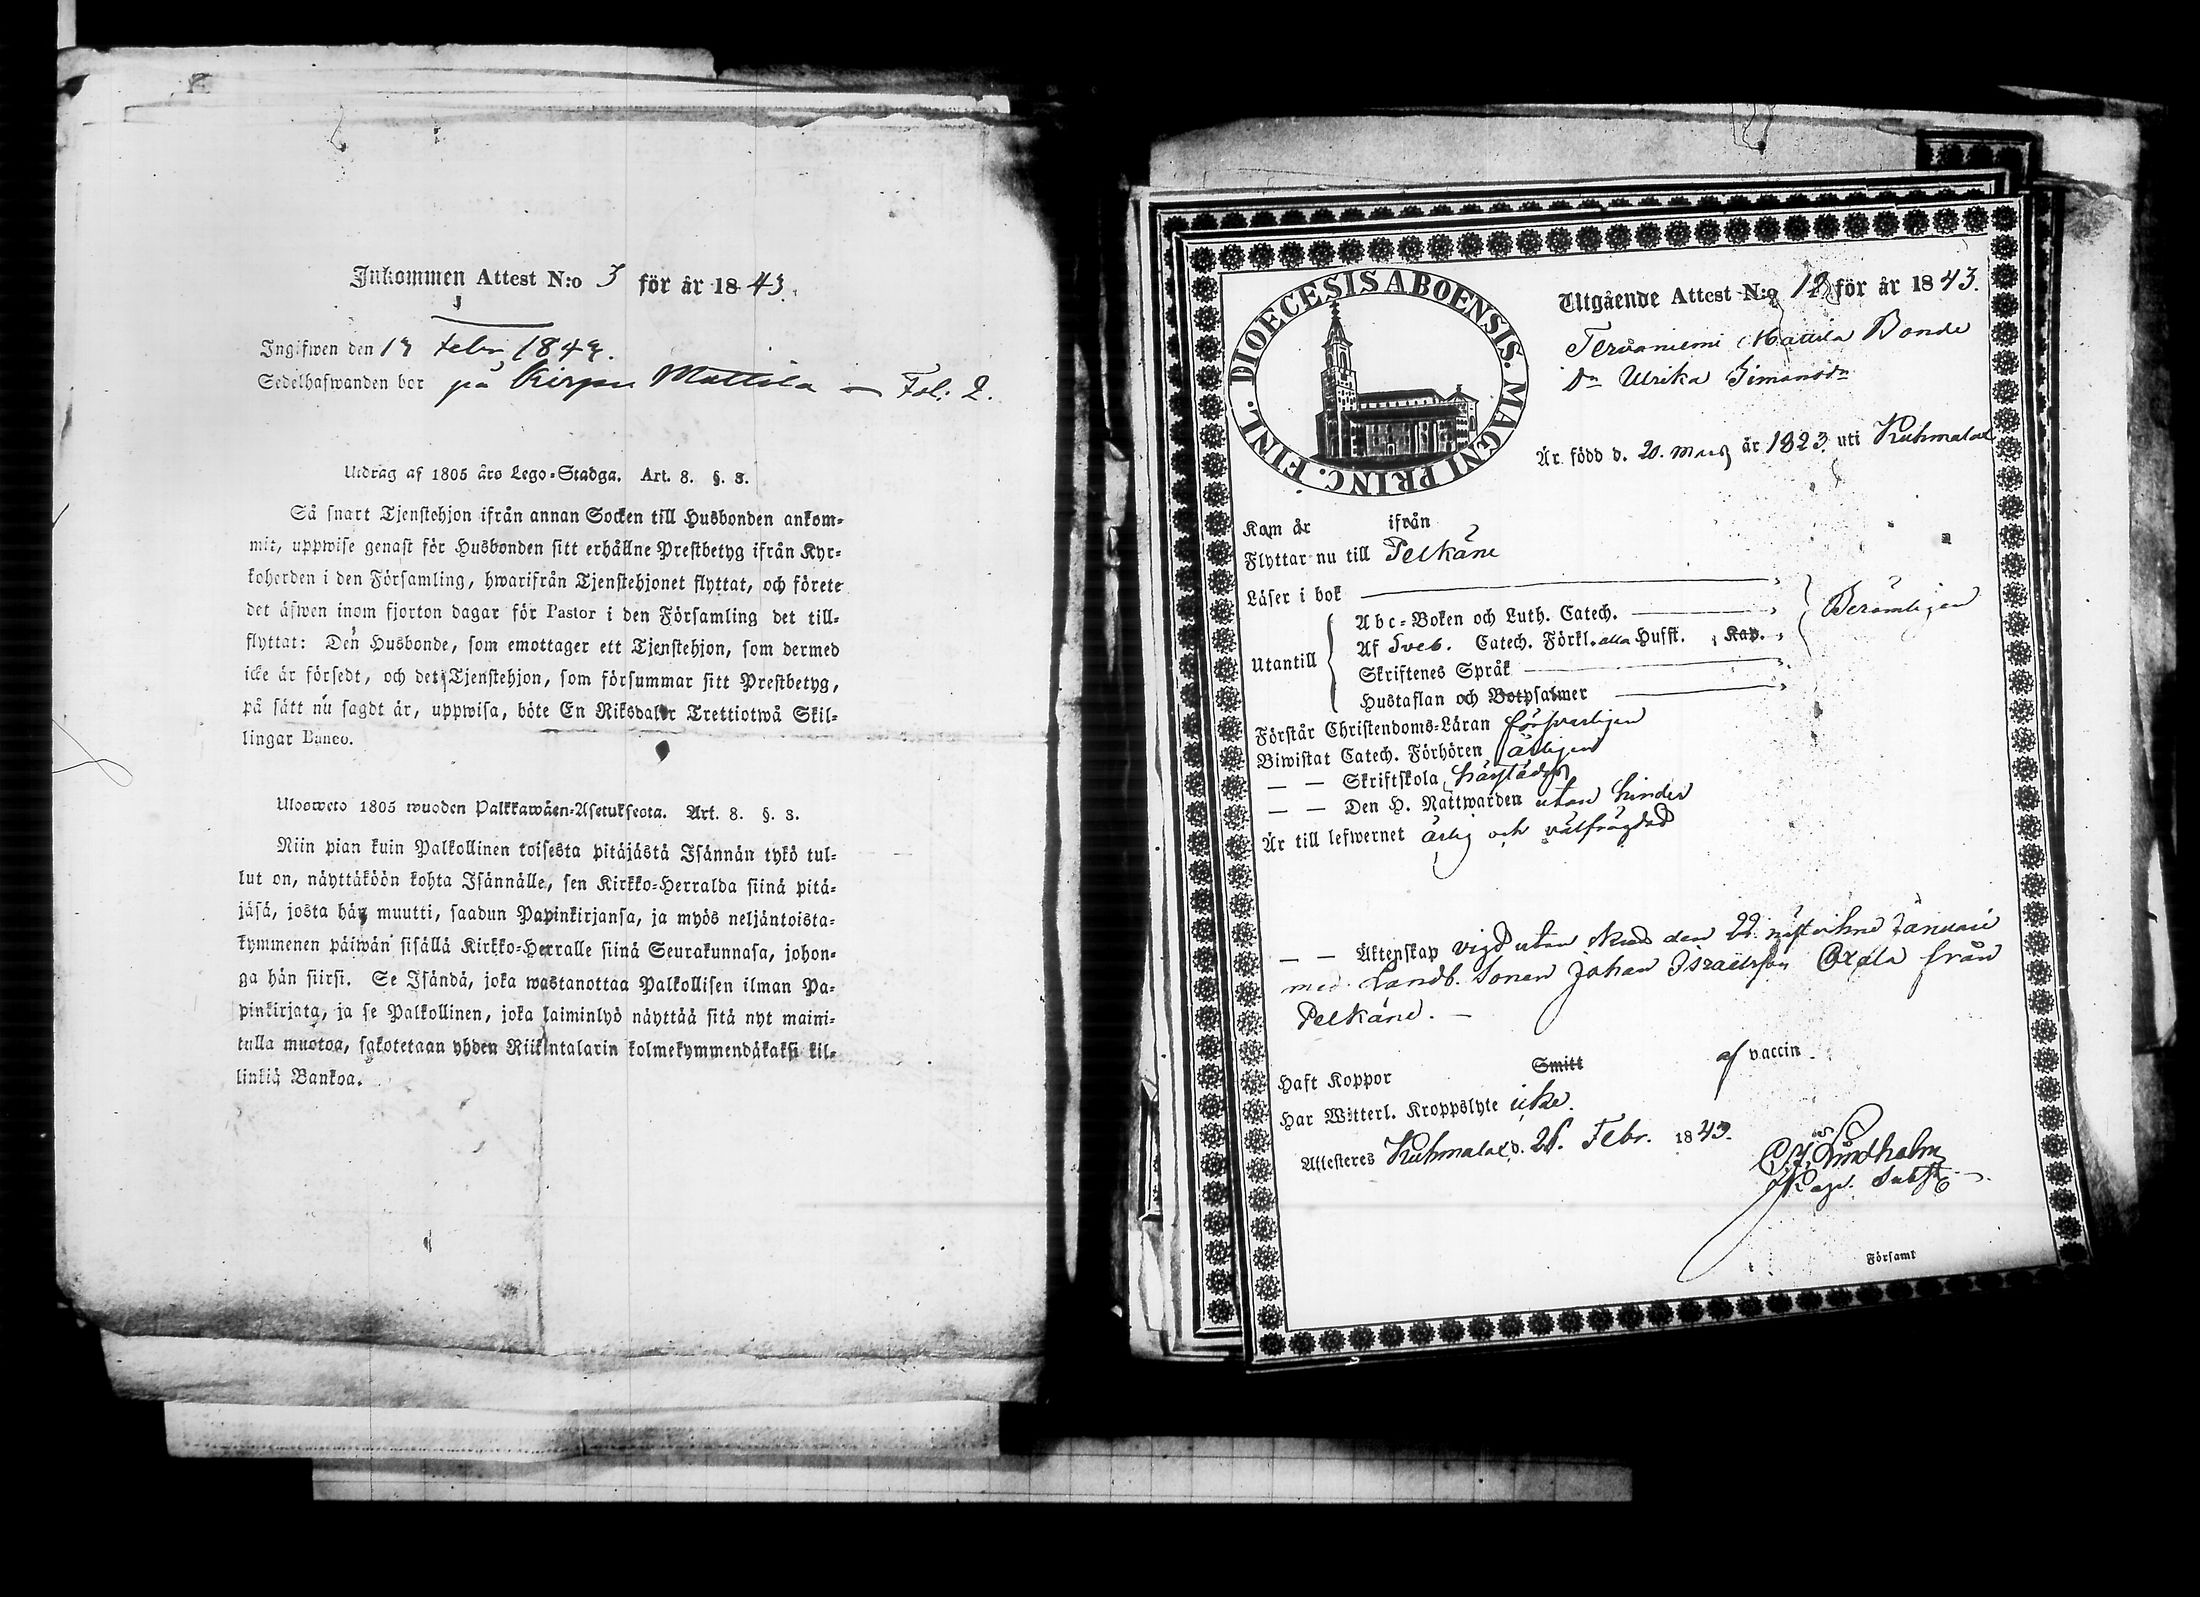 Inkommen Attest N:o 3 för år 1843.
Ingifwen den 19 Febr. 1843.
Sedelhafwanden bor på Mattila — Fol: 2.
Utdrag af 1805 års Lego-Stadga. Art. 8. §. 3.
Så snart Tjenstehjon ifrån annan Socken till Husbonden ankom-
mit, uppwise genast för Husbonden sitt erhållne Prestbetyg ifrån Kyr-
koherden i den Församling, hwarifrån Tjenstehjonet flyttat, och förete
det äfwen inom fjorton dagar för Pastor i den Församling det till-
flyttat: Den Husbonde, som emottager ett Tjenstehjon, som dermed
icke är försedt, och det Tjenstehjon, som försummar sitt Prestbetyg,
på sätt nu sagdt är, uppwisa, böte En Riksdaler Trettiotwå Skil-
lingar Banco.
Ulosweto 1805 wuoden Palkkawäen-Asetuksesta. Art. 8. §. 3.
Niin pian kuin Palkollinen toisesta pitäjästä Isännän tykö tul-
lut on, näyttäköön kohta Isännälle, sen Kirkko-Herralda siinä pitä-
jäsä, josta hän muutti, saadun Papinkirjansa, ja myös neljäntoista-
kymmenen päiwän sisällä Kirkko-Herralle siinä Seurakunnasa, johon-
ga hän siirsi. Se Isändä, joka wastanottaa Palkollisen ilman Pa-
pinkirjata, ja se Palkollinen, joka laiminlyö näyttää sitä nyt maini-
tulla muotoa, sakotetaan yhden Riikintalarin kolmekymmendäkaksi kil-
linkiä Bankoa.
DIOECESIS ABOENSIS. MAGNI PRINC. FINL.
Utgående Attest N:o 12 för år 1843.
Tervaniemi Mattila Bonde
Dn Ulrika Simonsdn
Är född d. 20. Mars år 1823. uti Kuhmalax
Kom år ifrån
Flyttar nu till Pelkäne
Läser i bok
Abc-Boken och Luth. Catech.
Utantill Af Sveb. Catech. Förkl. alla Husft. Kap. Berömligen
Skriftenes Språk
Hustaflan och Botpsalmer
Förstår Christendoms-Läran försvarligen
Biwistat Catech. Förhören årligen
— — Skriftskola härstädes
— — Den H. Nattwarden utan hinder
Är till lefwernet ärlig och välfrägdad
— — Äktenskap vigd utan den 22 Januarii
med Landb. Sonen Johan Israelsson från
Pelkäne. —
Haft Koppor Smitt af vaccin.
Har Witterl. Kroppslyte icke.
Attesteras Kuhmalax d. 28. Febr. 1843.
C. J. Lindholm
Kapl. Subst.
Församl